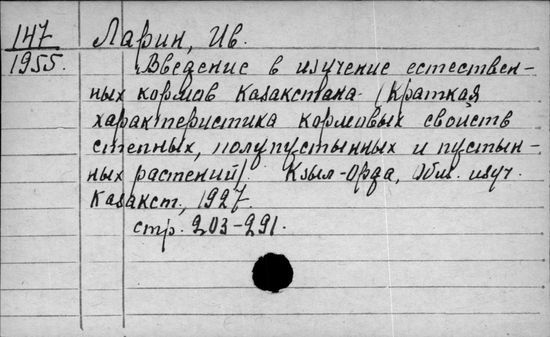 147
1955.
Ларин, Ив.
Введение в изучение естествен-
ных кормов Казакстана. (Краткая
характеристика кормовых свойств
степных, полупустынных и пустын-
ных растений). Кзыл-Орда, Общ. изуч.
Казакст., 1927.
стр. 203-291.